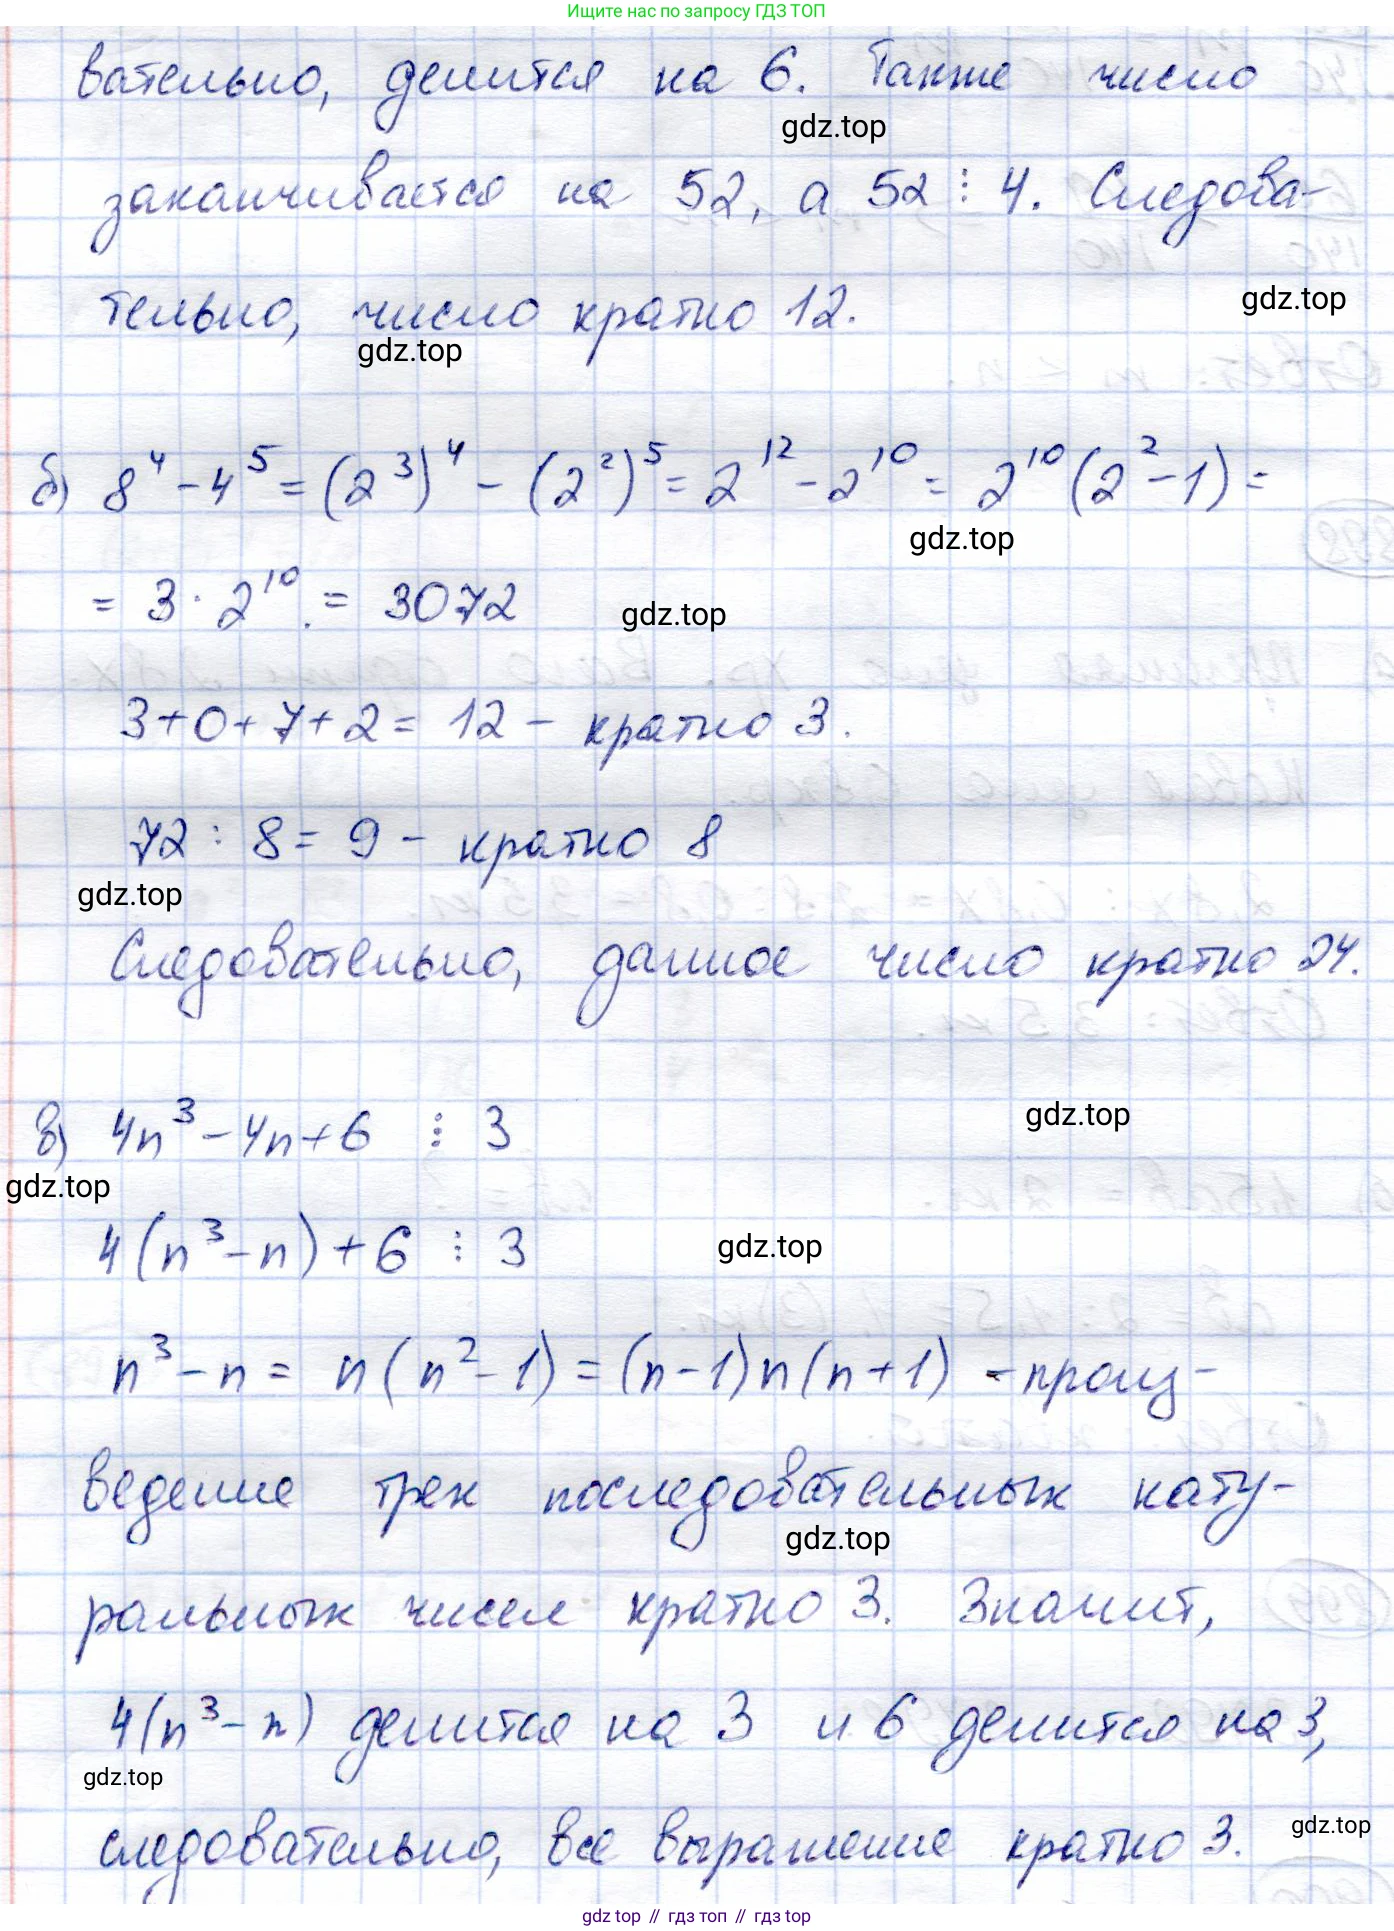 Ищите нас по запросу ГДЗ ТОП
вательно, делится на 6. Также число
gdz.top
заканчивается на 52, а 52 ⋮ 4. Следова-
gdz.top
тельно, число кратно 12.
gdz.top
б) 8⁴ - 4⁵ = (2³)⁴ - (2²)⁵ = 2¹² - 2¹⁰ = 2¹⁰(2² - 1) =
gdz.top
= 3 · 2¹⁰ = 3072
gdz.top
3+0+7+2 = 12 - кратно 3.
72 : 8 = 9 - кратно 8
gdz.top
Следовательно, данное число кратно 24.
gdz.top
в) 4n³ - 4n + 6 ⋮ 3
gdz.top
4(n³ - n) + 6 ⋮ 3
gdz.top
n³ - n = n(n² - 1) = (n-1)n(n+1) - произ-
ведение трех последовательных нату-
gdz.top
ральных чисел кратно 3. Значит,
4(n³ - n) делится на 3 и 6 делится на 3,
gdz.top
следовательно, все выражение кратно 3.
gdz.top
gdz top // гдз топ // гдз top